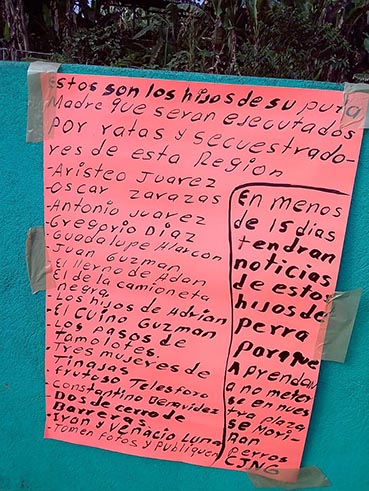 Estos son los hijos de su puta
Madre que seran ejecutados
por ratas y secuestrado-
res de esta Region
-Aristeo Juarez
-Oscar zarazas
-Antonio juarez
-Gregorio Diaz
-Guadalupe Alarcon
-Juan Guzman
-El Yerno de Adan
-El de la camioneta
negra
-Los hijos de Adrian
-El Cuino Guzman
-Los nasos de
Tamolotes.
-Tres mujeres de
Tinajas
-Telesforo
-Constantino Benavidez
-Dos de cerro de
Barreras.
-Ivan y Venacio Luna
-Tomen fotos y publiquen
En menos
de 15 dias
tendran
noticias
de estos
hijos de
perra
porque
Aprendan
a no meter
se en nues
tra plaza
se Mori-
Ran
perros
CJNG